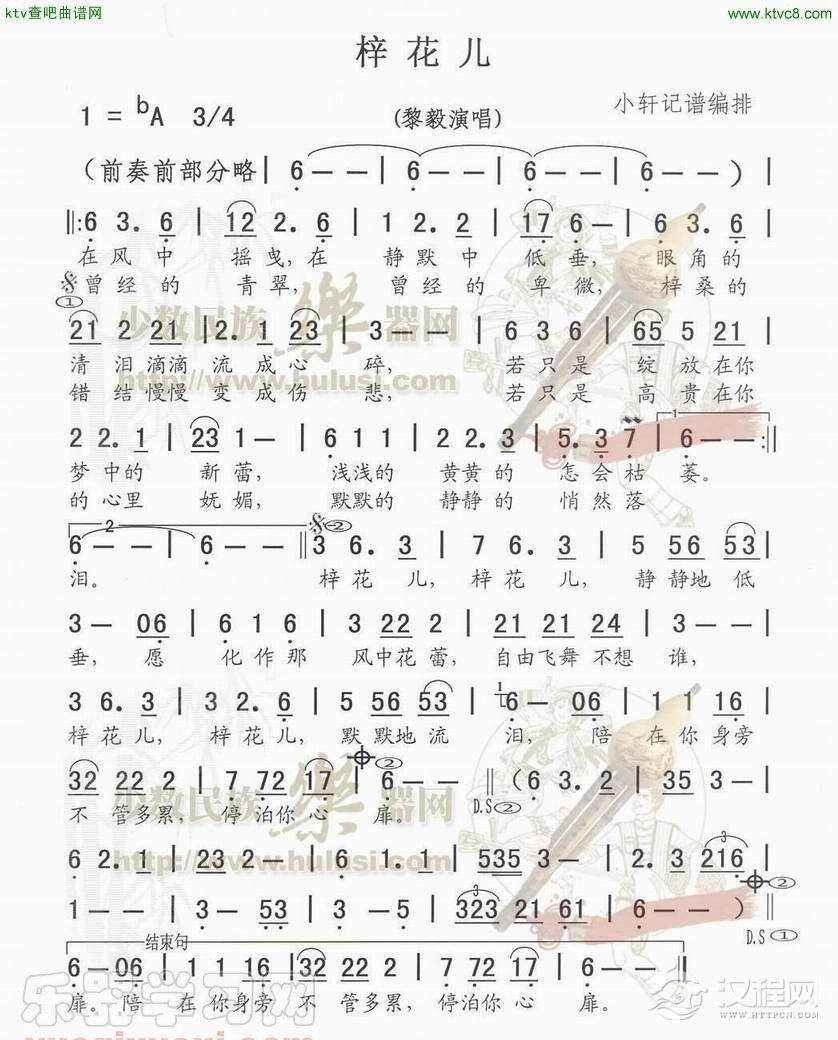 ktv查吧曲谱网 www.ktvc8.com
梓花儿
1 = bA 3/4 (黎毅演唱) 小轩记谱编排
(前奏前部分略| 6 - - | 6 - - | 6 - - | 6 - - ) |
||: 6 3. 6 | 12 2. 6 | 1 2 2. | 17 6 - | 6 3. 6 |
在风中 摇曳,在 静默中 低垂, 眼角的
①曾经的 青翠, 曾经的 卑微, 梓桑的
21 2 21 | 2. 1 23 | 3 - - | 6 3 6 | 65 5 21 |
清泪滴滴 流成心 碎, 若只是 绽放在你
错结慢慢 变成伤 悲, 若只是 高贵在你
2 2. 1 | 23 1 - | 6 1 1 | 2 2. 3 | 5. 3 7 | 1 6 - - :||
梦中的 新蕾, 浅浅的 黄黄的 怎会枯 萎。
的心里 妩媚, 默默的 静静的 悄然落
2 ②
6 - - | 6 - - || 3 6. 3 | 7 6. 3 | 5 56 53 |
泪。 梓花儿, 梓花儿, 静静地低
3 - 06 | 6 1 6 | 3 22 2 | 21 21 24 | 3 - - |
垂, 愿 化作那 风中花蕾, 自由飞舞不想谁,
3 6. 3 | 3 2. 6 | 5 56 53 | 6 - 06 | 1 1 16 |
梓花儿, 梓花儿, 默默地流 泪, 陪 在你身旁
32 22 2 | 7 72 17 | 6 - - || (6 3. 2 | 35 3 - |
不管多累, 停泊你心 扉。 D.S ②
6 2. 1 | 23 2 - | 6 1. 1 | 535 3 - | 2. 3 216 |
1 - - | 3 - 53 | 3 - 5 | 323 21 61 | 6 - - ) ||
D.S ①
结束句
6 - 06 | 1 1 16 | 32 22 2 | 7 72 17 | 6 - - ||
扉。陪 在你身旁 不管多累, 停泊你心 扉。
少数民族樂器网
http://www.hulusi.com
少数民族樂器网
http://www.hulusi.com
乐器学习网
汉程网
HTTPCN.COM